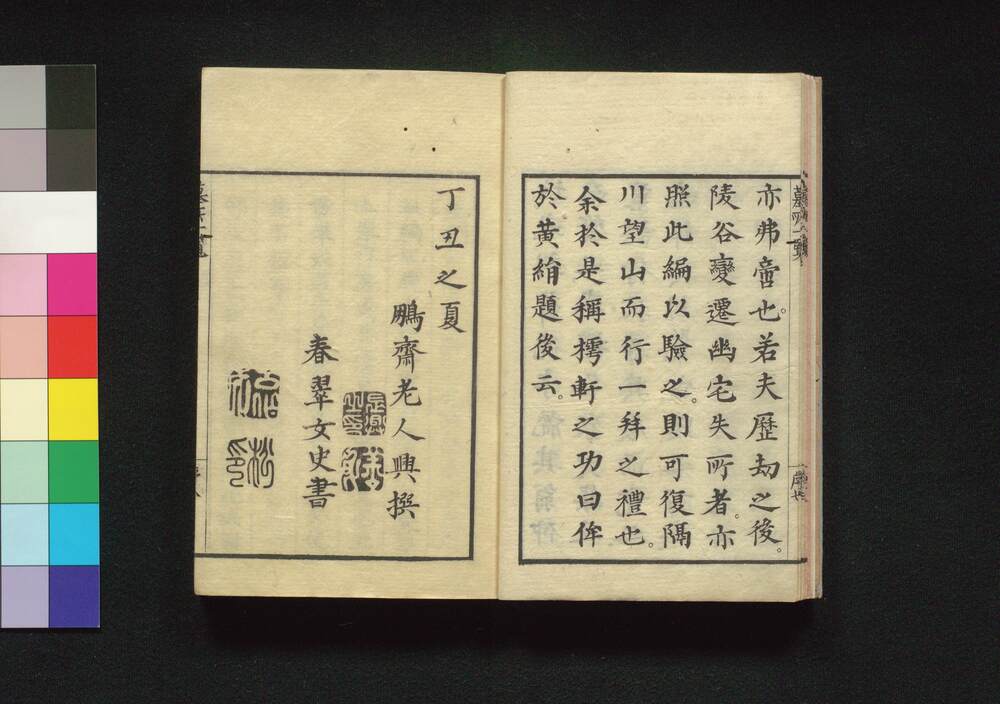 亦弗啻也。若夫歷劫之後。
陵谷變遷幽宅失所者。亦
照此編以驗之。則可復隔
川望山而行一拜之禮也。
余於是稱樗軒之功曰侔
於黃絹題後云。
丁丑之夏
鵬齋老人興撰
春翠女史書